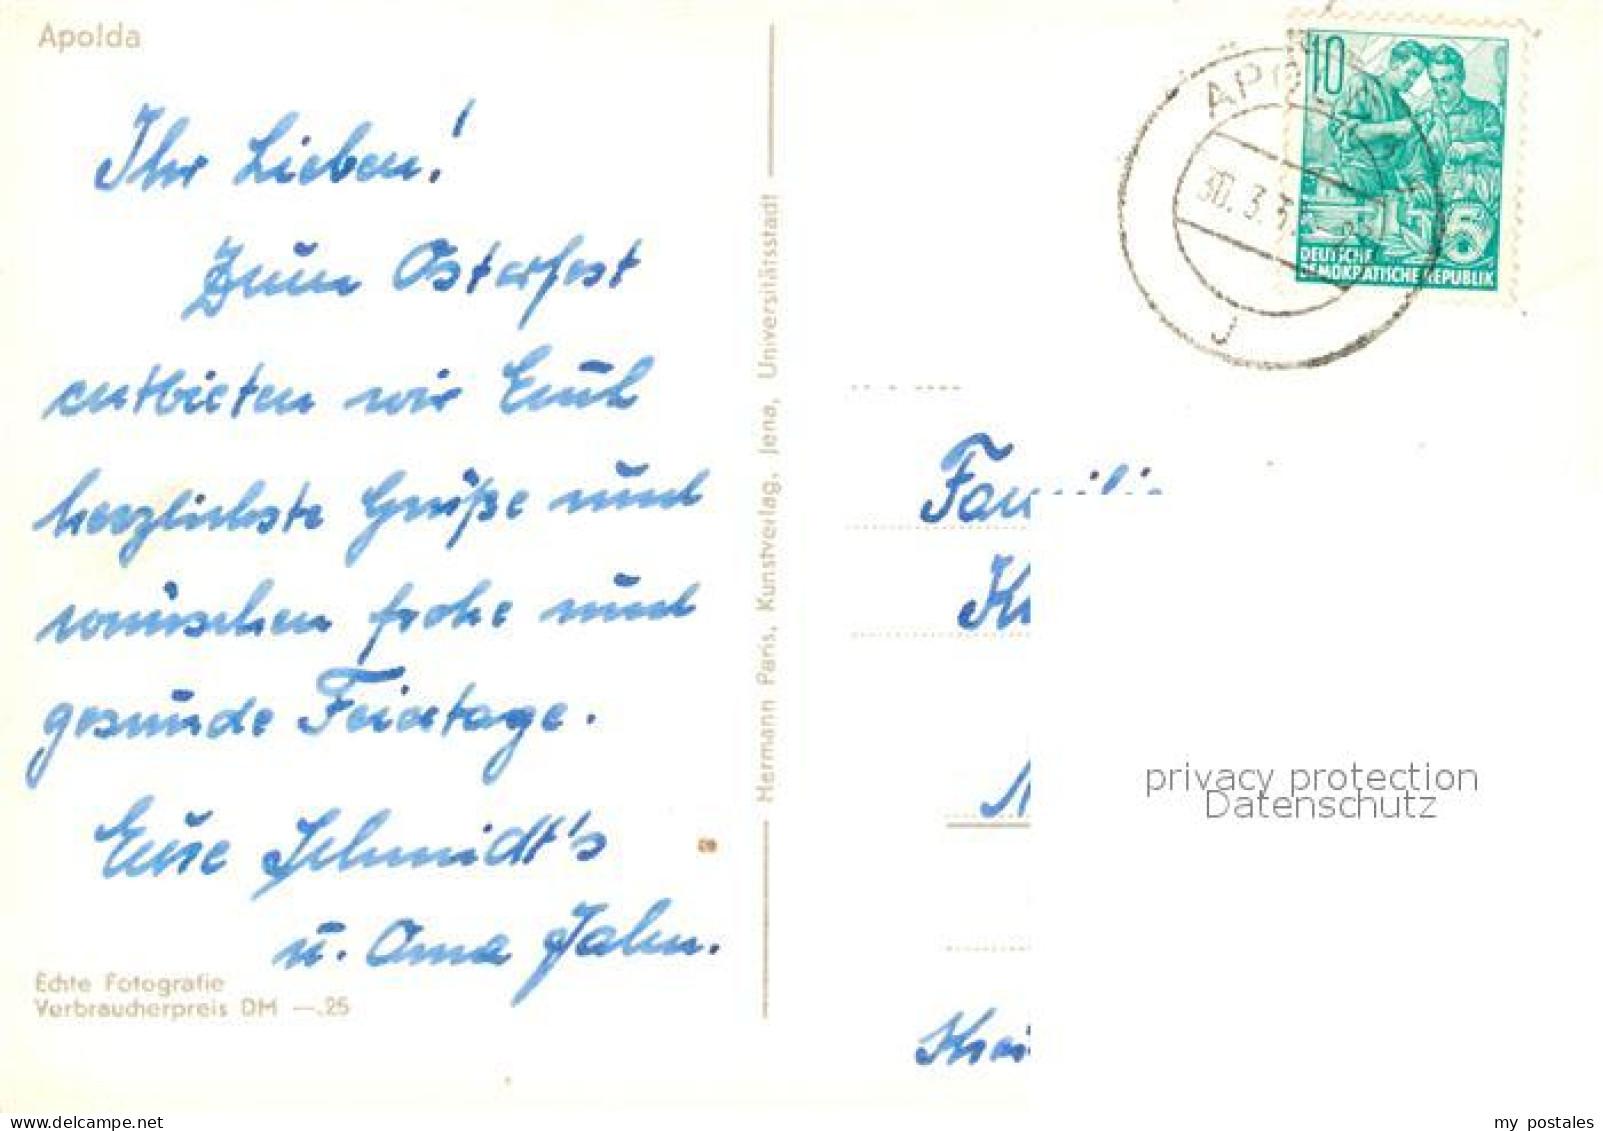 Apolda
Ihr Lieben!
Zum Osterfest
entbieten wir Euch
herzlichste Grüße und
wünschen frohe und
gesunde Feiertage.
Eure Schmidt's
u. Oma Jahn.
Echte Fotografie
Verbraucherpreis DM —.25
Hermann Paris, Kunstverlag, Jena, Universitätsstadt
10
5
DEUTSCHE
DEMOKRATISCHE REPUBLIK
30.3.
J
Familie
privacy protection
Datenschutz
www.delcampe.net
my_postales